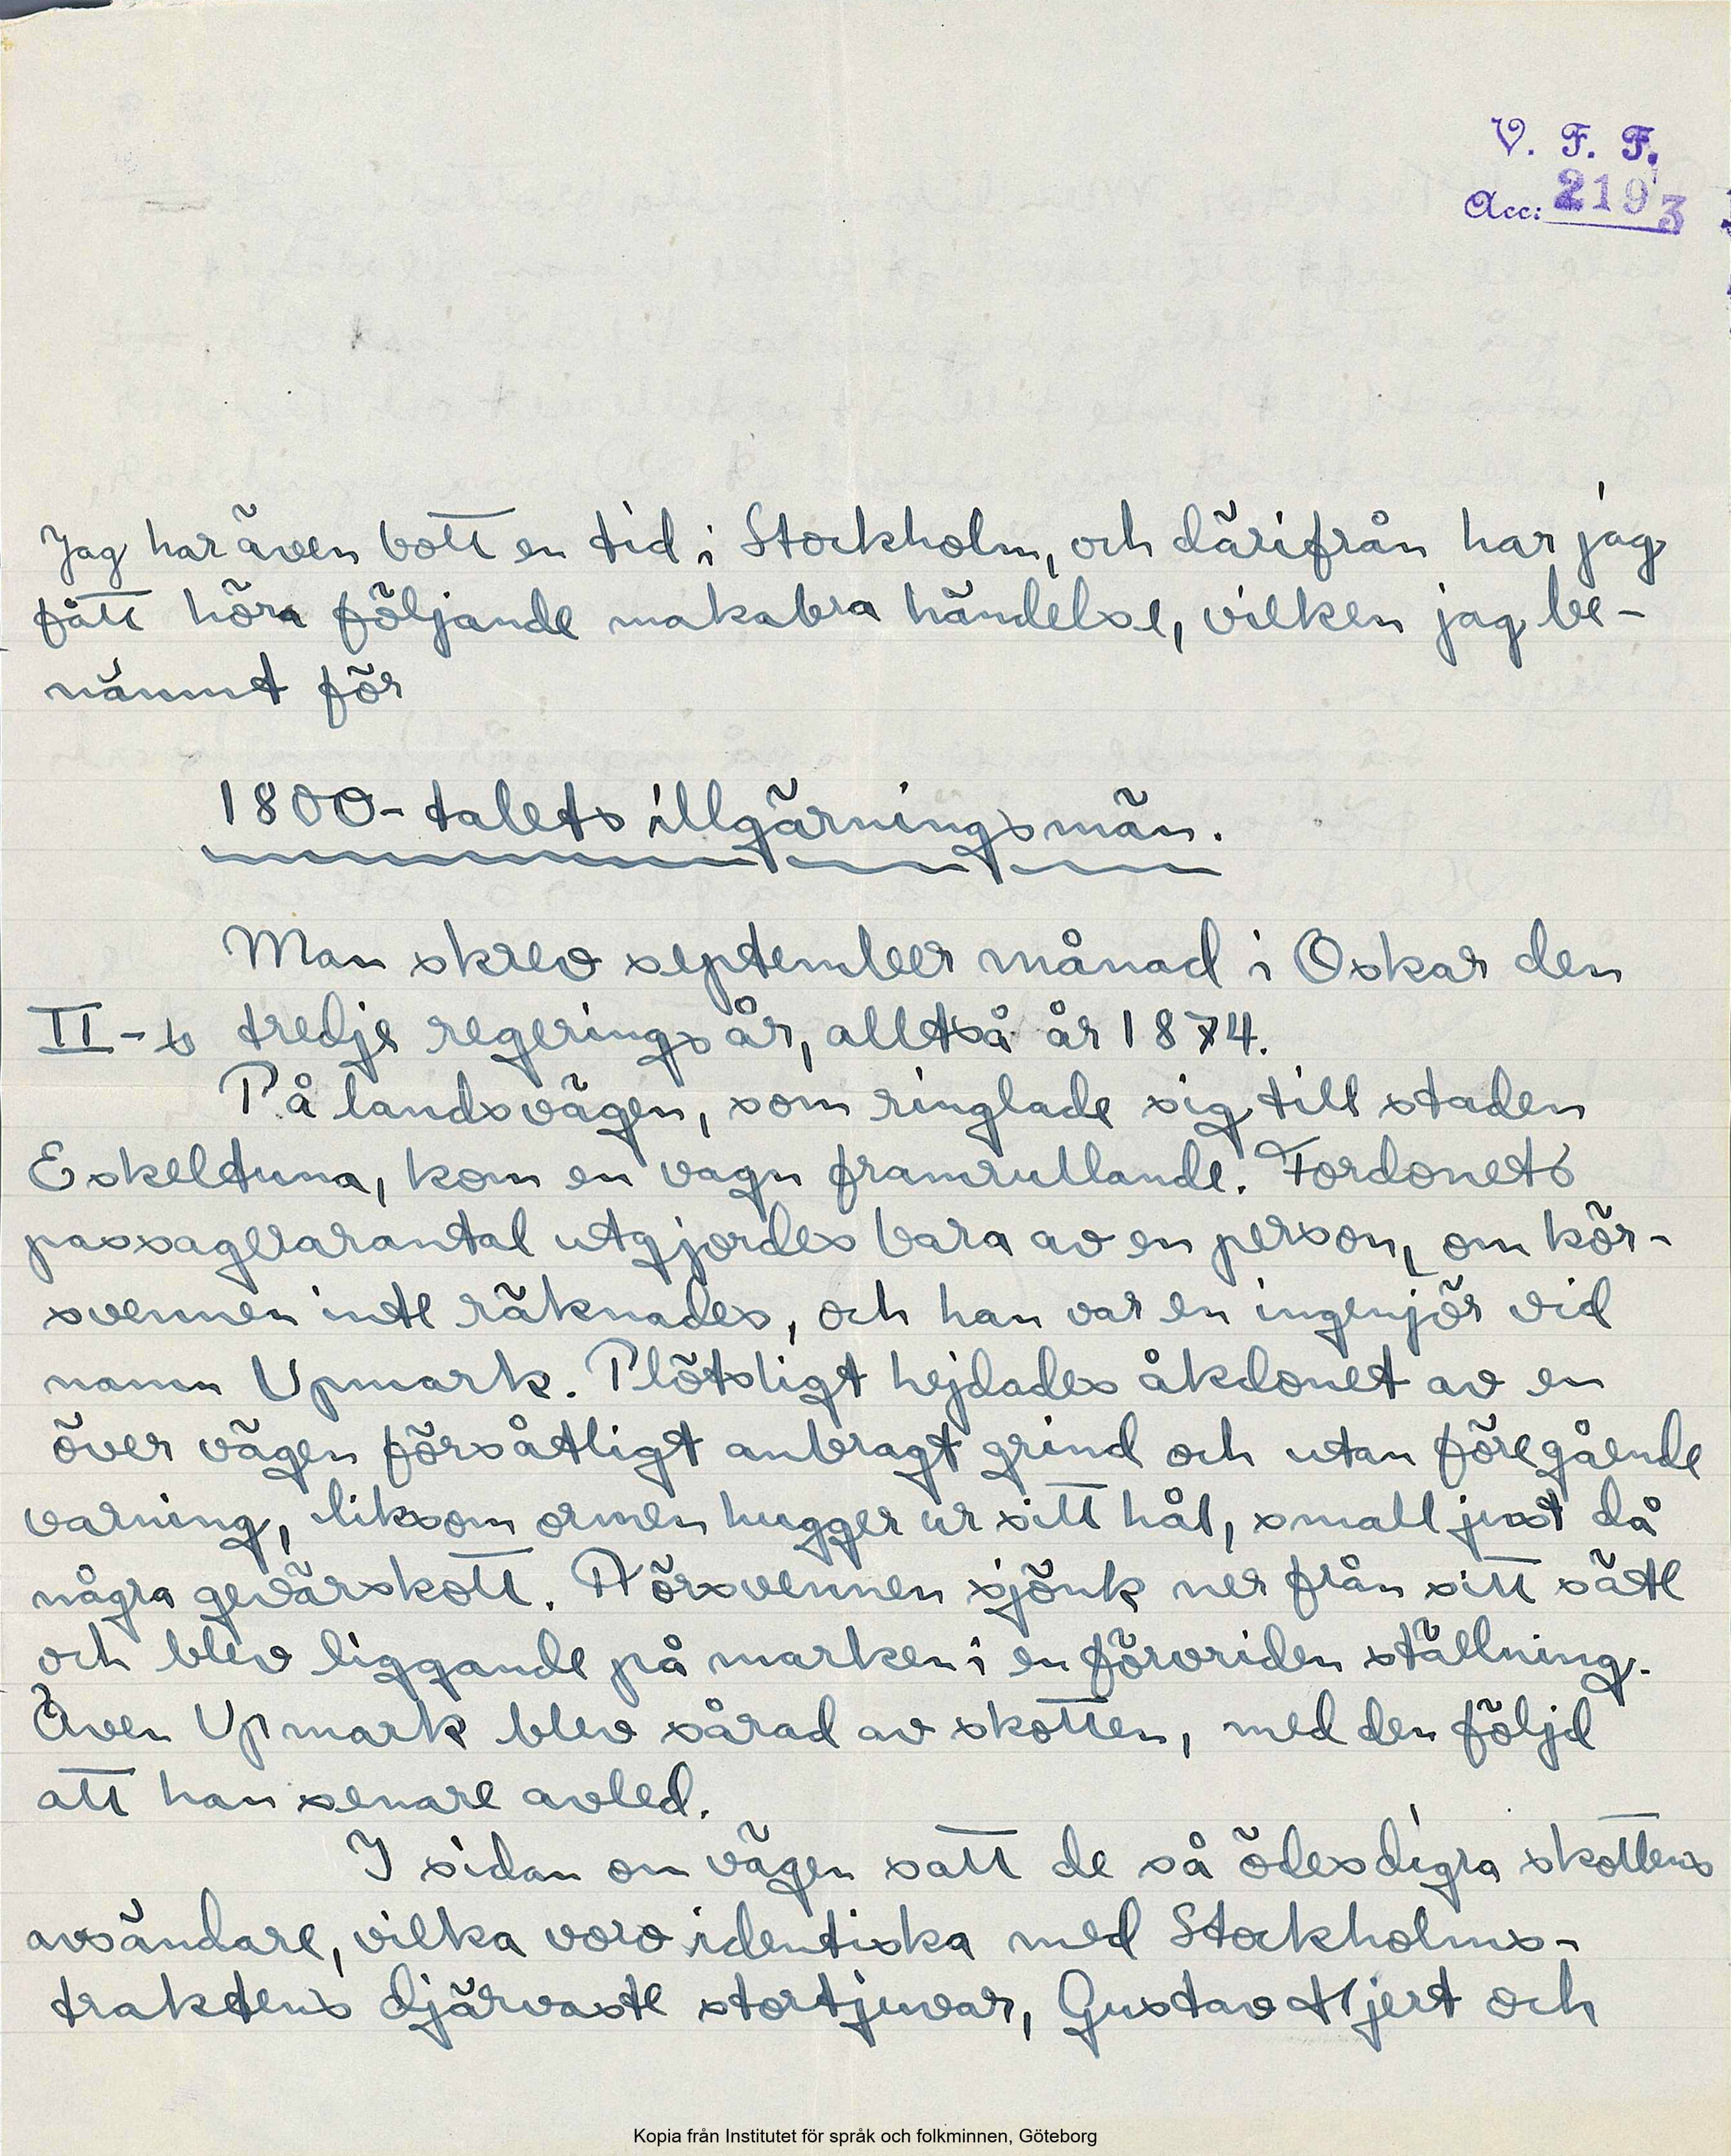 V. F. F.
Acc: 2193
Jag har även bott en tid i Stockholm, och därifrån har jag
fått höra följande makabra händelse, vilken jag be-
nämnt för
1800-talets illgärningsmän.
Man skrev september månad i Oskar den
II-s tredje regeringsår, alltså år 1874.
På landsvägen, som ringlade sig till staden
Eskeltuna, kom en vagn framrullande. Fordonets
passagerarantal utgjordes bara av en person, om kör-
svennen inte räknades, och han var en ingenjör vid
namn Upmark. Plötsligt hejdades åkdonet av en
över vägen försåtligt anbragt grind och utan föregående
varning, liksom ormen hugger ur sitt hål, small just då
några gevärskott. Körsvennen sjönk ner från sitt säte
och blev liggande på marken i en förvriden ställning.
Även Upmark blev sårad av skotten, med den följd
att han senare avled.
I sidan om vägen satt de så ödesdigra skottens
avsändare, vilka voro identiska med Stockholms-
traktens djärvaste stortjuvar, Gustav Hjert och
Kopia från Institutet för språk och folkminnen, Göteborg